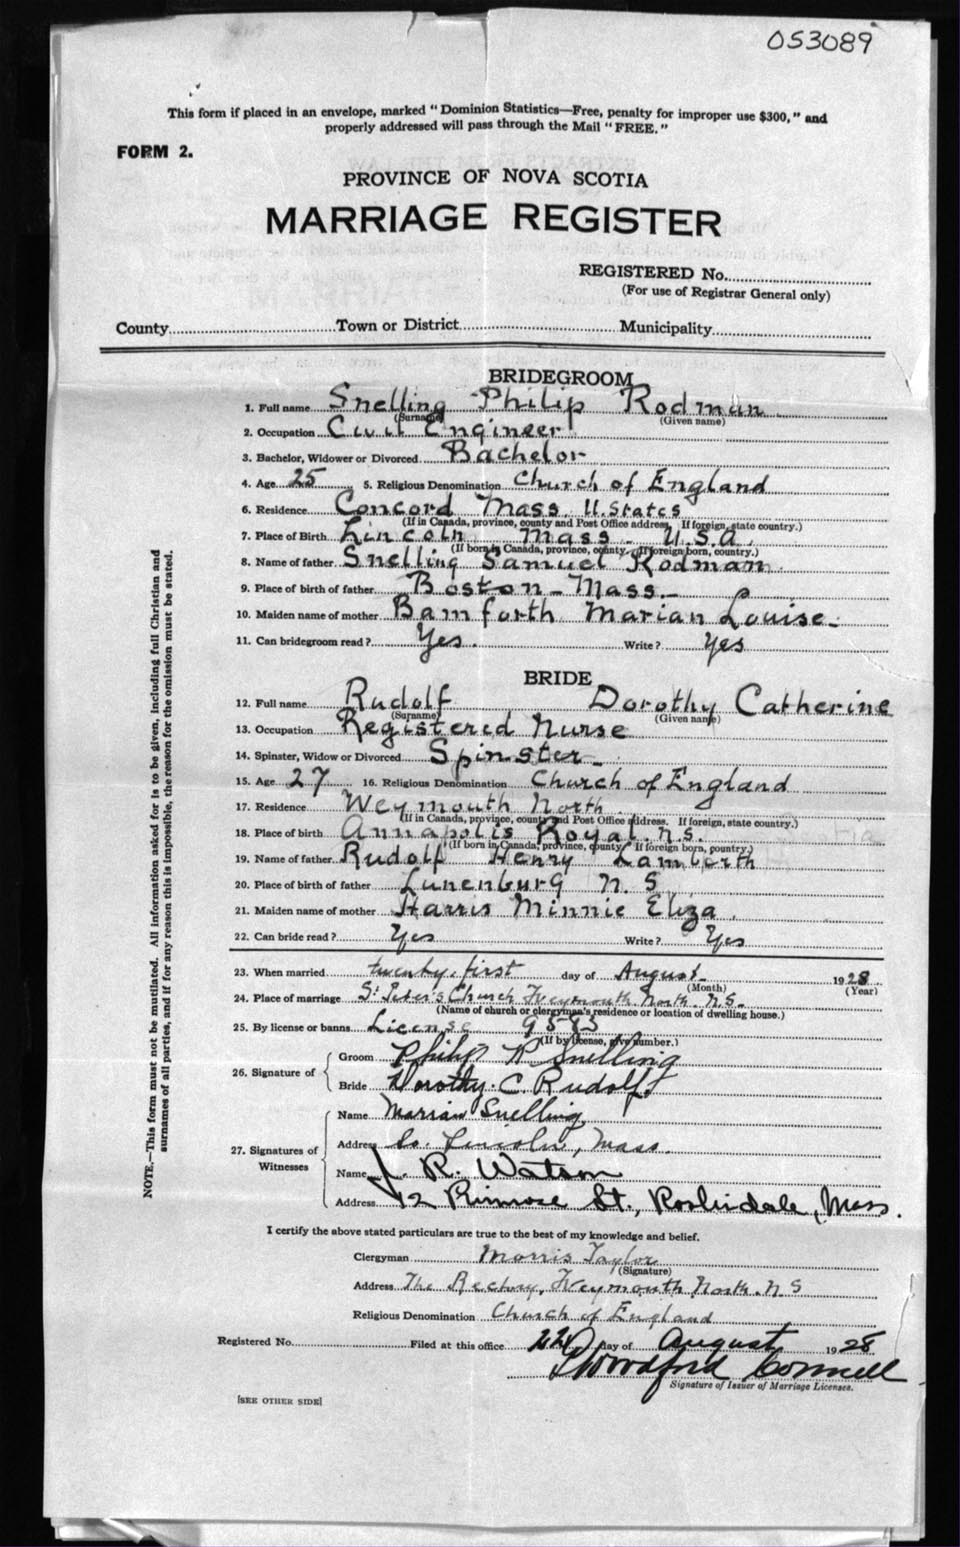 053089
This form if placed in an envelope, marked "Dominion Statistics—Free, penalty for improper use $300," and
properly addressed will pass through the Mail "FREE."
FORM 2.
PROVINCE OF NOVA SCOTIA
MARRIAGE REGISTER
REGISTERED No.
(For use of Registrar General only)
County Town or District Municipality
BRIDEGROOM
1. Full name Snelling Philip Rodman
(Surname) (Given name)
2. Occupation Civil Engineer
3. Bachelor, Widower or Divorced Bachelor
4. Age 25 5. Religious Denomination Church of England
6. Residence Concord Mass U. States
(If in Canada, province, county and Post Office address. If foreign, state country.)
7. Place of Birth Lincoln Mass - U.S.A.
(If born in Canada, province, county. If foreign born, country.)
8. Name of father Snelling Samuel Rodman
9. Place of birth of father Boston - Mass.-
10. Maiden name of mother Bamforth Marian Louise-
11. Can bridegroom read? Yes. Write? Yes
BRIDE
12. Full name Rudolf Dorothy Catherine
(Surname) (Given name)
13. Occupation Registered Nurse
14. Spinster, Widow or Divorced Spinster-
15. Age 27 16. Religious Denomination Church of England
17. Residence Weymouth North
(If in Canada, province, county and Post Office address. If foreign, state country.)
18. Place of birth Annapolis Royal. N.S.
(If born in Canada, province, county. If foreign born, country.)
19. Name of father Rudolf Henry Lamberth
20. Place of birth of father Lunenburg N.S.
21. Maiden name of mother Harris Minnie Eliza.
22. Can bride read? Yes Write? Yes
23. When married twenty-first day of August 1928
(Month) (Year)
24. Place of marriage St Peter's Church Weymouth North. N.S.
(Name of church or clergyman's residence or location of dwelling house.)
25. By license or banns License 9583
(If by license, give number.)
26. Signature of
Groom Philip R Snelling
Bride Dorothy. C. Rudolf
27. Signatures of
Witnesses
Name Marian Snelling
Address So. Lincoln, Mass.
Name J. R. Watson
Address 12 Primrose St., Roslindale, Mass.
I certify the above stated particulars are true to the best of my knowledge and belief.
Clergyman Morris Taylor
(Signature)
Address The Rectory, Weymouth North. N S
Religious Denomination Church of England
Registered No. Filed at this office 22d day of August 1928
Woodford Connell
Signature of Issuer of Marriage Licenses.
[SEE OTHER SIDE]
NOTE.—This form must not be mutilated. All information asked for is to be given, including full Christian and
surnames of all parties, and if for any reason this is impossible, the reason for the omission must be stated.